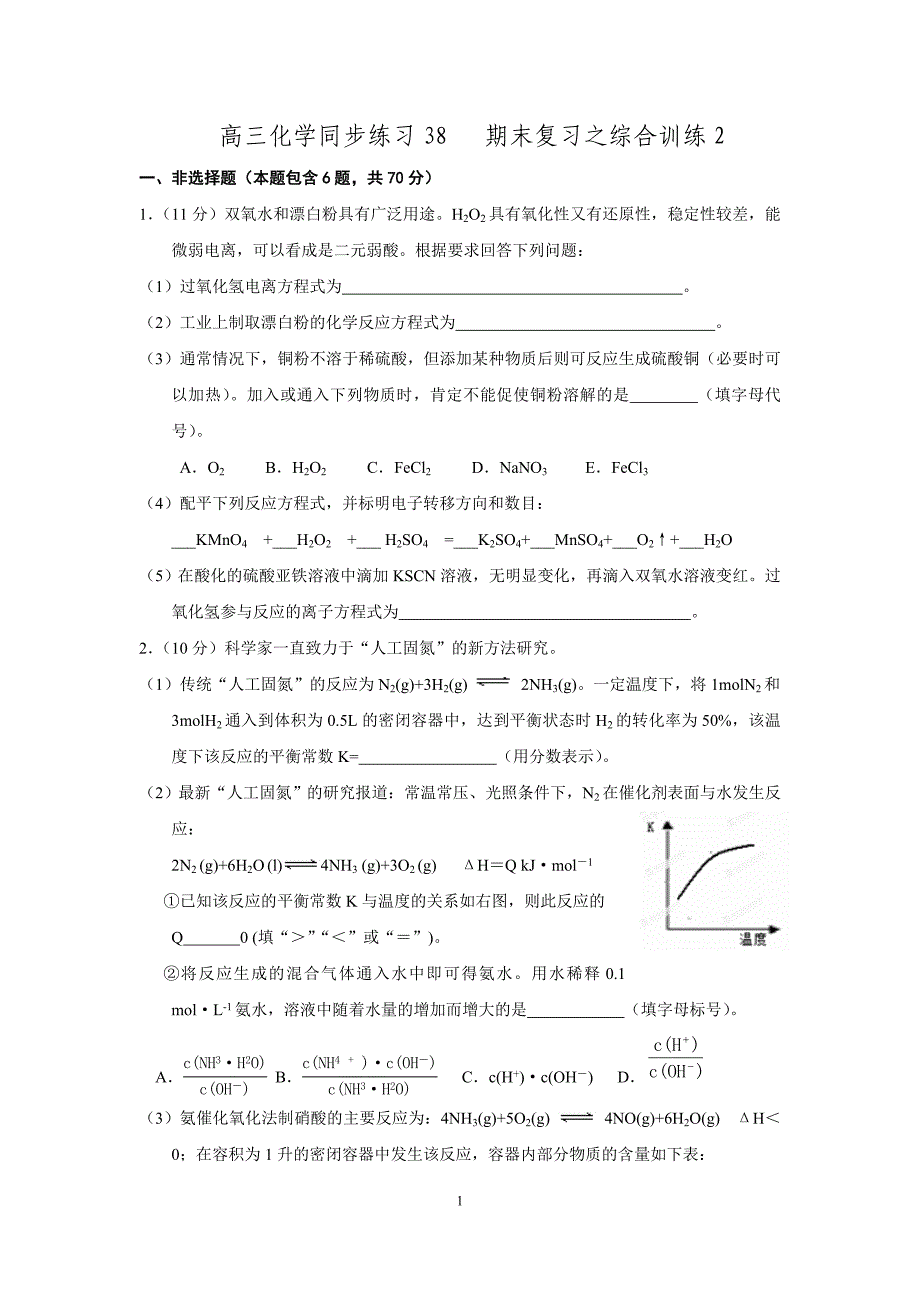 高三化学同步练习 38 期末复习之综合训练 2
一、非选择题（本题包含 6 题，共 70 分）
1．（11 分）双氧水和漂白粉具有广泛用途。H₂O₂ 具有氧化性又有还原性，稳定性较差，能
微弱电离，可以看成是二元弱酸。根据要求回答下列问题：
（1）过氧化氢电离方程式为________________________________________。
（2）工业上制取漂白粉的化学反应方程式为______________________________。
（3）通常情况下，铜粉不溶于稀硫酸，但添加某种物质后则可反应生成硫酸铜（必要时可
以加热）。加入或通入下列物质时，肯定不能促使铜粉溶解的是________（填字母代
号）。
A．O₂ B．H₂O₂ C．FeCl₂ D．NaNO₃ E．FeCl₃
（4）配平下列反应方程式，并标明电子转移方向和数目：
___KMnO₄ +___H₂O₂ +___ H₂SO₄ =___K₂SO₄+___MnSO₄+___O₂↑+___H₂O
（5）在酸化的硫酸亚铁溶液中滴加 KSCN 溶液，无明显变化，再滴入双氧水溶液变红。过
氧化氢参与反应的离子方程式为__________________________________。
2．（10 分）科学家一直致力于“人工固氮”的新方法研究。
（1）传统“人工固氮”的反应为 N₂(g)+3H₂(g) ⇌ 2NH₃(g)。一定温度下，将 1molN₂ 和
3molH₂ 通入到体积为 0.5L 的密闭容器中，达到平衡状态时 H₂ 的转化率为 50%，该温
度下该反应的平衡常数 K=________________（用分数表示）。
（2）最新“人工固氮”的研究报道：常温常压、光照条件下，N₂ 在催化剂表面与水发生反
应：
2N₂ (g)+6H₂O (l)⇌4NH₃ (g)+3O₂ (g) ΔH＝Q kJ·mol⁻¹
①已知该反应的平衡常数 K 与温度的关系如右图，则此反应的
Q_______0 (填“＞”“＜”或“＝”)。
K
温度
②将反应生成的混合气体通入水中即可得氨水。用水稀释 0.1
mol·L⁻¹ 氨水，溶液中随着水量的增加而增大的是____________（填字母标号）。
A．c(NH³·H²O)/c(OH⁻) B．c(NH⁴ ⁺ )·c(OH⁻)/c(NH³·H²O) C．c(H⁺)·c(OH⁻) D．c(H⁺)/c(OH⁻)
（3）氨催化氧化法制硝酸的主要反应为：4NH₃(g)+5O₂(g) ⇌ 4NO(g)+6H₂O(g) ΔH＜
0；在容积为 1 升的密闭容器中发生该反应，容器内部分物质的含量如下表：
1